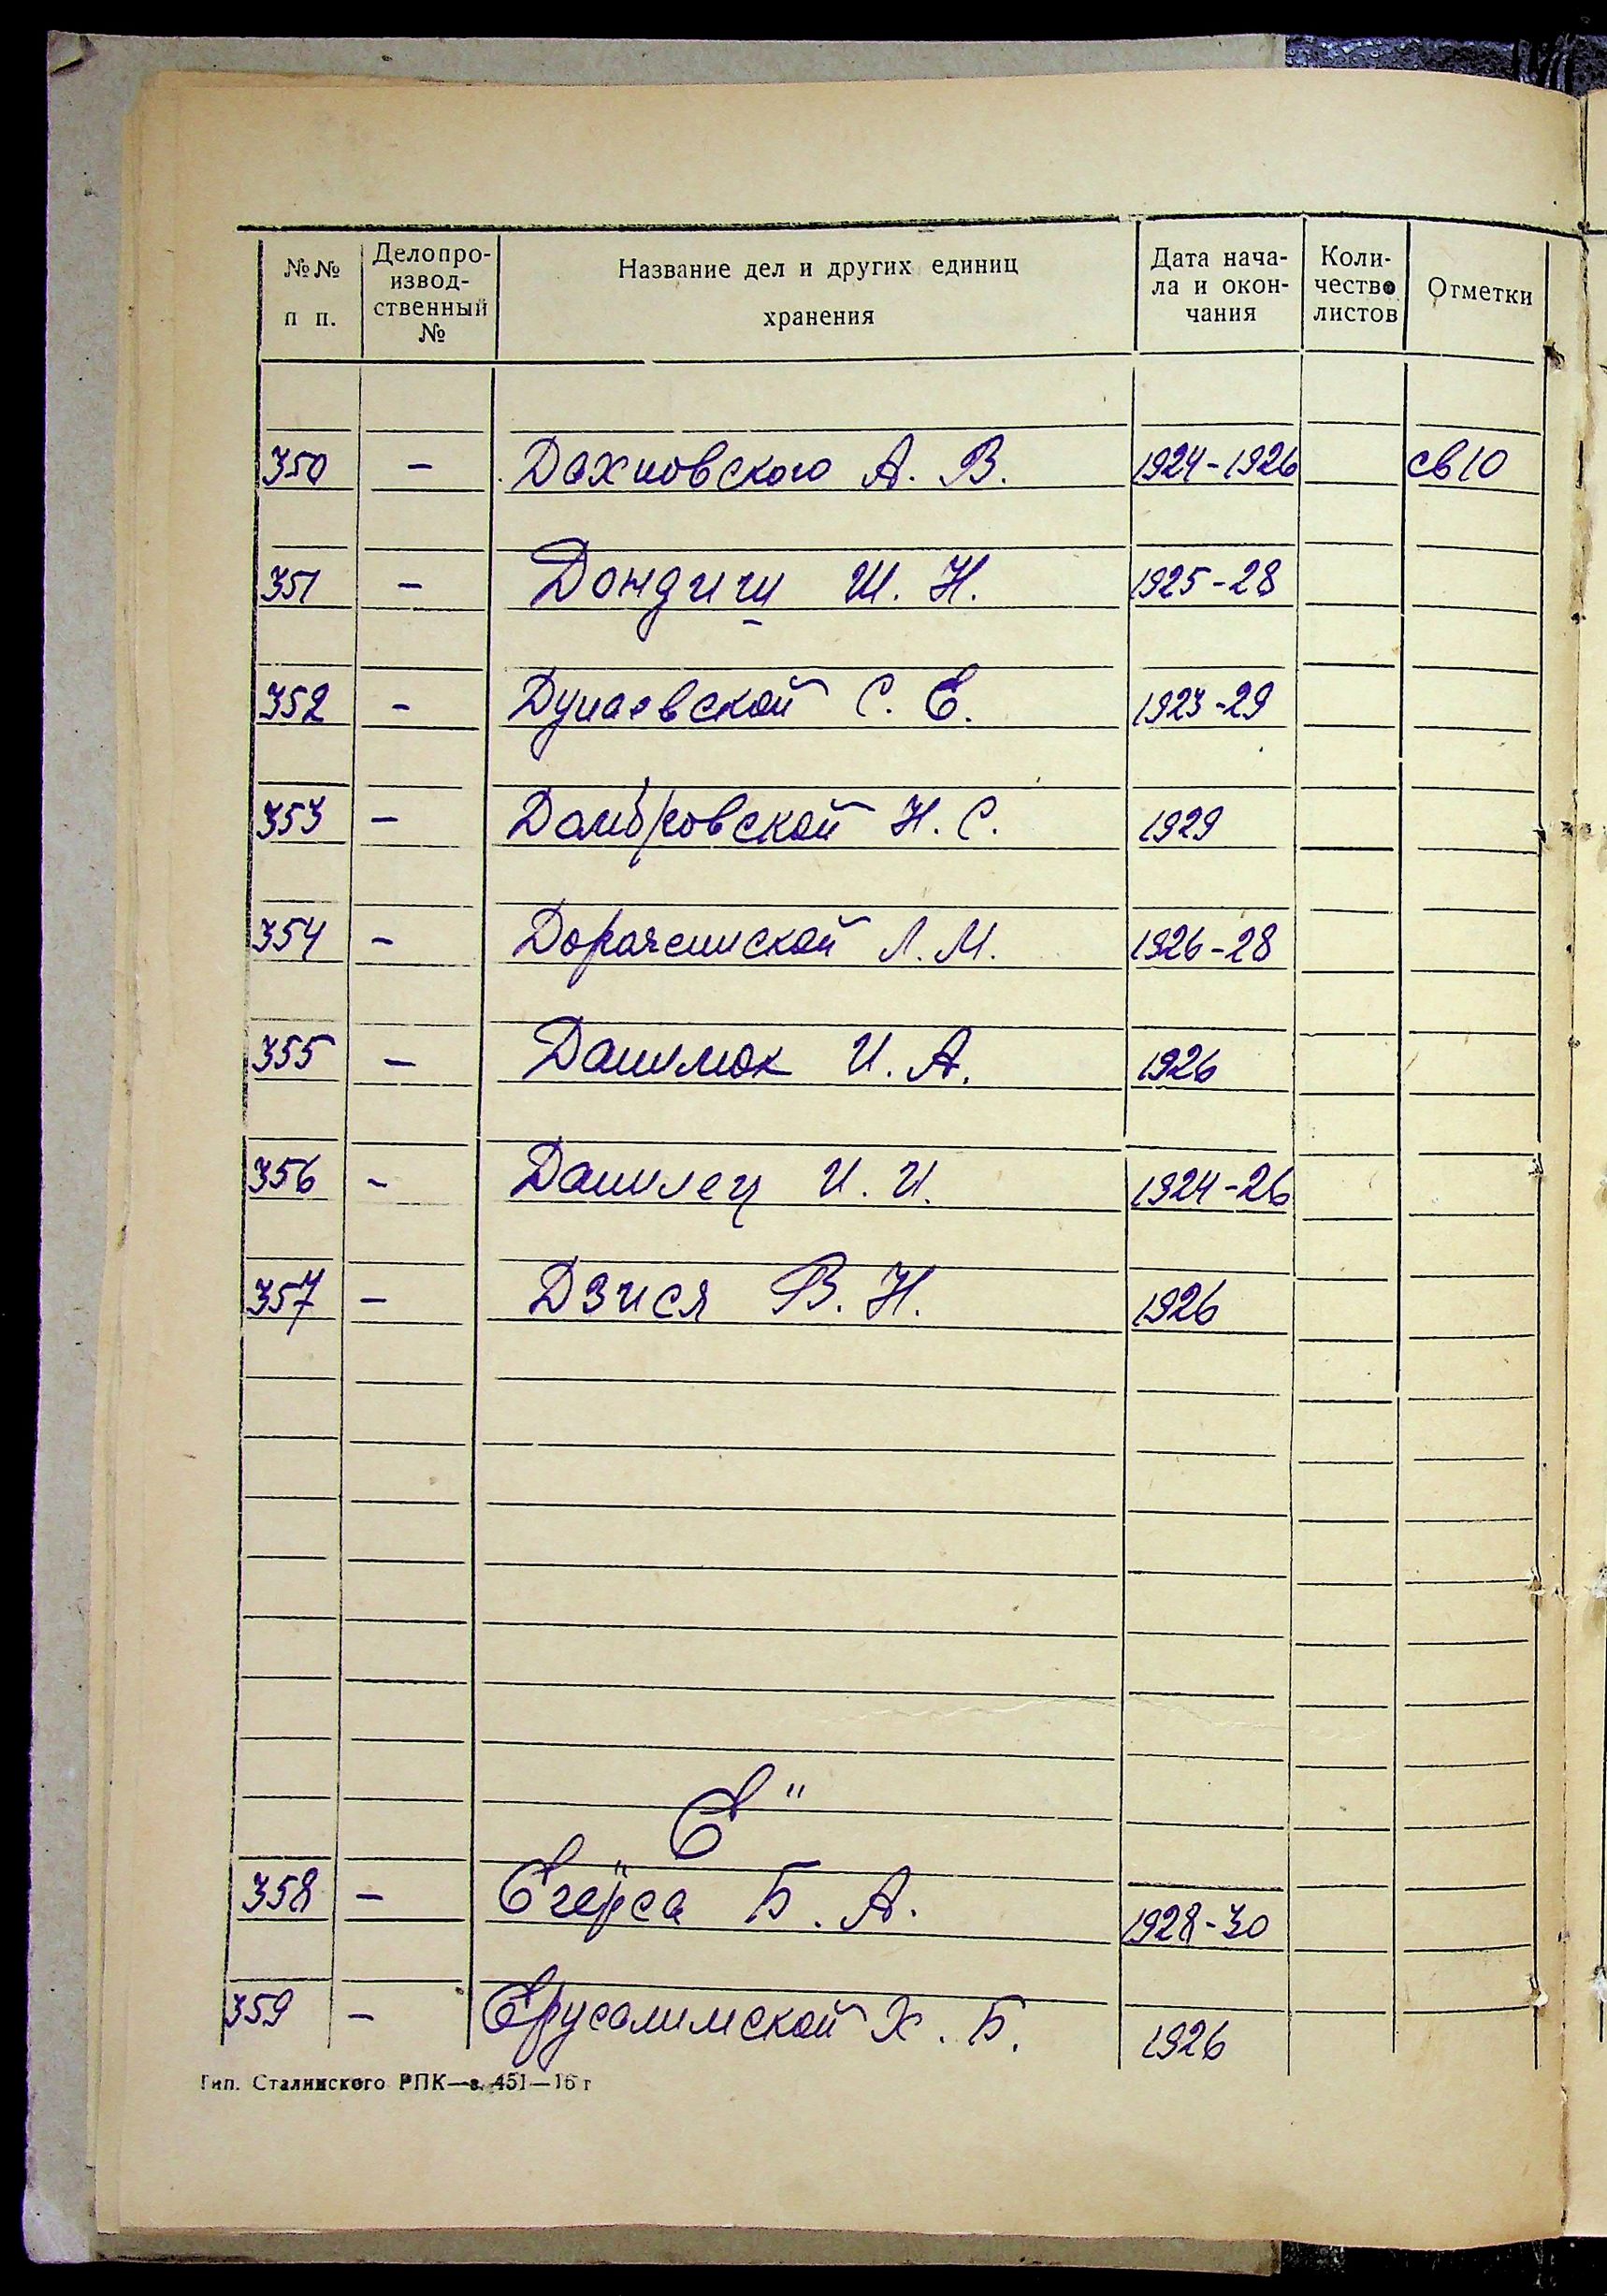 №№ п п. Делопро-извод-ственный № Название дел и других единиц хранения Дата нача-ла и окон-чания Коли-чество листов Отметки
350 - Дахновского А. В. 1924-1926 св10
351 - Дондиш Ш. Н. 1925-28
352 - Дунаевской С. Е. 1923-29
353 - Домбровской Н. С. 1929
354 - Дорочинской Л. М. 1926-28
355 - Данилюк И. А. 1926
356 - Данилец И. И. 1924-26
357 - Дзися В. Н. 1926
Е"
358 - Егерса Б. А. 1928-30
359 - Ерусалимской Х. Б. 1926
Тип. Сталинского РПК—з. 451—16 г